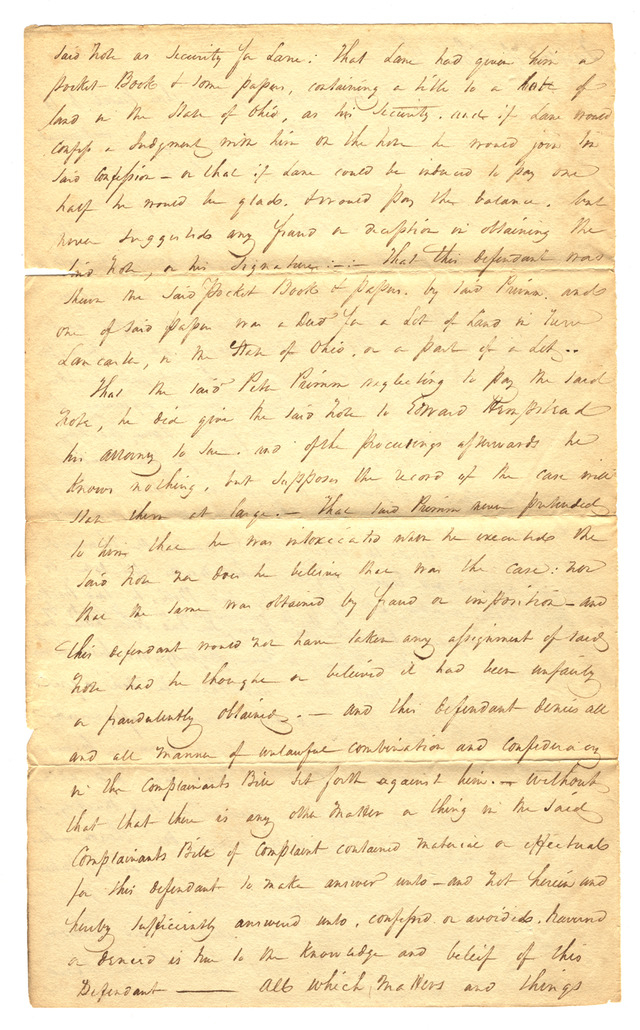 said Note as Security for Lane: That Lane had given him a
Pocket-Book & some papers, containing a title to a Lott of
land in the State of Ohio, as his Security. and if Lane would
confess a Judgment with him on the note he would join in
said Confession - or that if Lane could be induced to pay one
half he would be glad. & would pay the balance. but
never suggested any fraud or deception in obtaining the
said Note, or his signature :-:- That this defendant was
shewn the said Pocket Book & papers. by said Primm. and
one of said papers was a Deed for a Lot of Land in New
Lancaster, in the State of Ohio, or a part of a Lot..
That the said Peter Primm neglecting to pay the said
Note, he did give the said Note to Edward Hempstead
his attorney to sue. and of the proceedings afterwards he
knows nothing, but supposes the record of the case will
state them at large. - That said Primm never pretended
to him that he was intoxecated when he executed the
said Note nor does he believe that was the case: nor
that the same was obtained by fraud or imposition - and
this defendant would not have taken any assignment of said
Note had he thought or beleived it had been unfairly
or fraudulently obtained. - and this defendant denies all
and all manner of unlawful combination and confederacy
in the Complainants Bill set forth against him. - without
that that there is any other matter or thing in the said
Complainants Bill of Complaint contained material or effectual
for this defendant to make answer unto - and not herein and
hereby sufficiently answered unto, confessed or avoided, traversed
or denied is true to the knowledge and beleif of this
Defendant —— All which matters and things